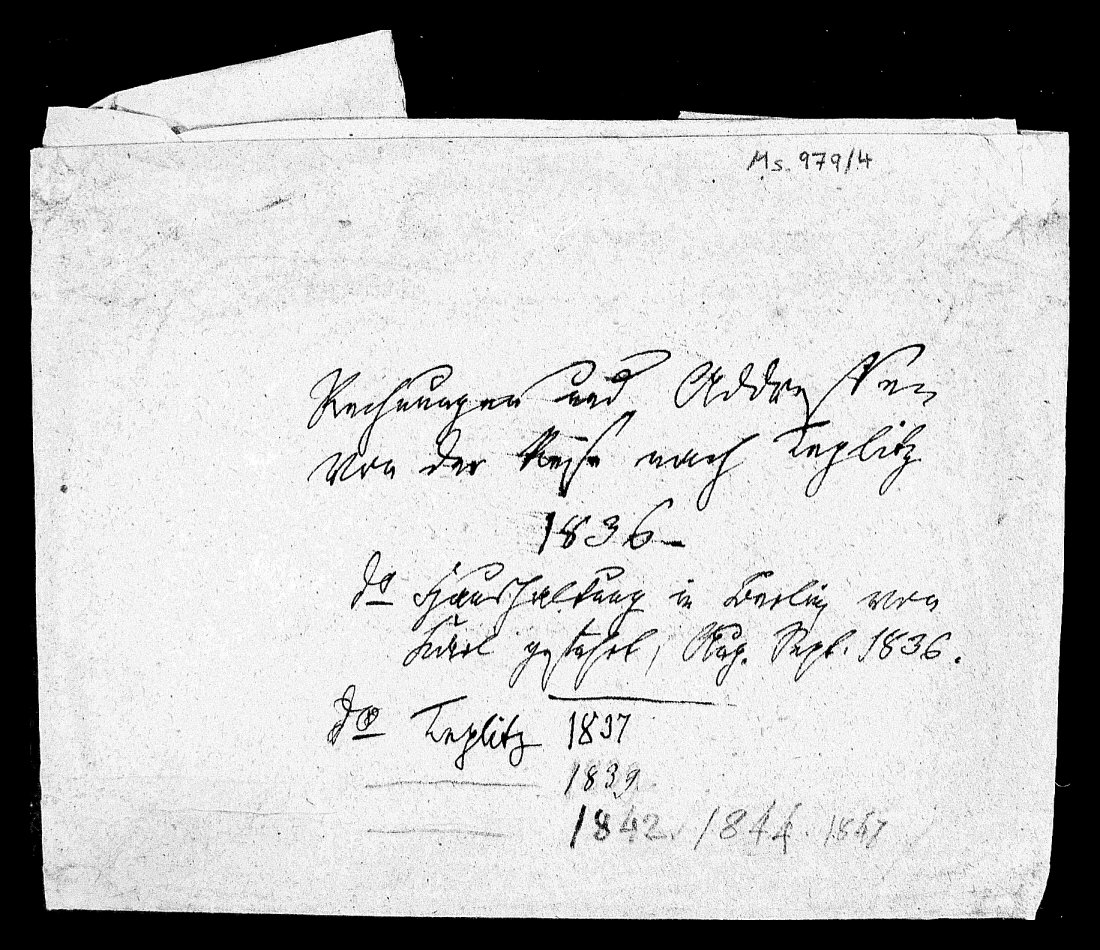 Ms. 979/4
Rechnungen und Addressen
von der Reise nach Teplitz
1836
do Haushaltung in Berlin von
Karl geführt, Aug. Sept. 1836.
do Teplitz 1837
1839
1842. 1844. 1847